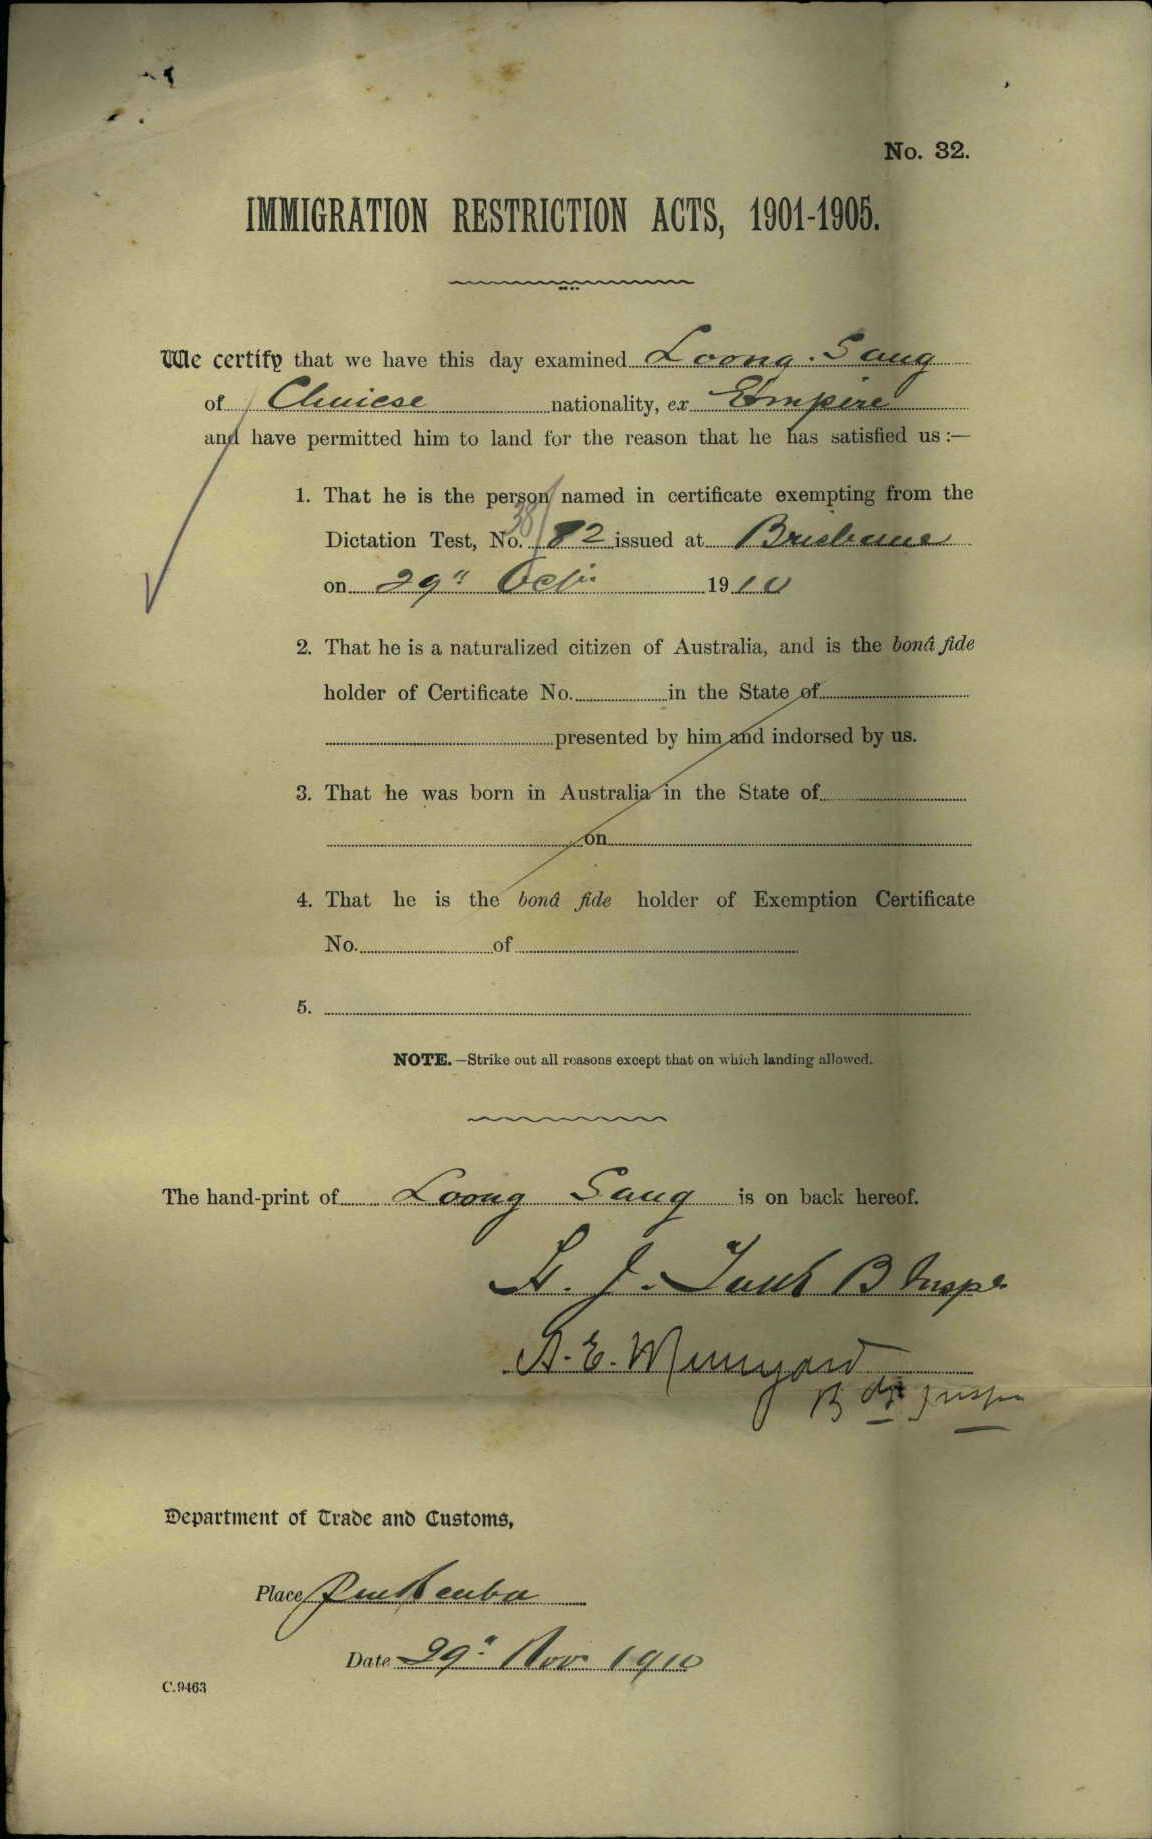 No. 32.
IMMIGRATION RESTRICTION ACTS, 1901-1905.
We certify that we have this day examined Loong. Sang
of Chinese nationality, ex Empire
and have permitted him to land for the reason that he has satisfied us :—
1. That he is the person named in certificate exempting from the
38/
Dictation Test, No. 82 issued at Brisbane
on 29" Oct. 1910
2. That he is a naturalized citizen of Australia, and is the bonâ fide
holder of Certificate No. in the State of
presented by him and indorsed by us.
3. That he was born in Australia in the State of
on
4. That he is the bonâ fide holder of Exemption Certificate
No. of
5.
NOTE.—Strike out all reasons except that on which landing allowed.
The hand-print of Loong Sang is on back hereof.
J. B Inspr
A. E.
B Inspr
Department of Trade and Customs,
Place Pinkenba
Date 29" Nov 1910
C.9463